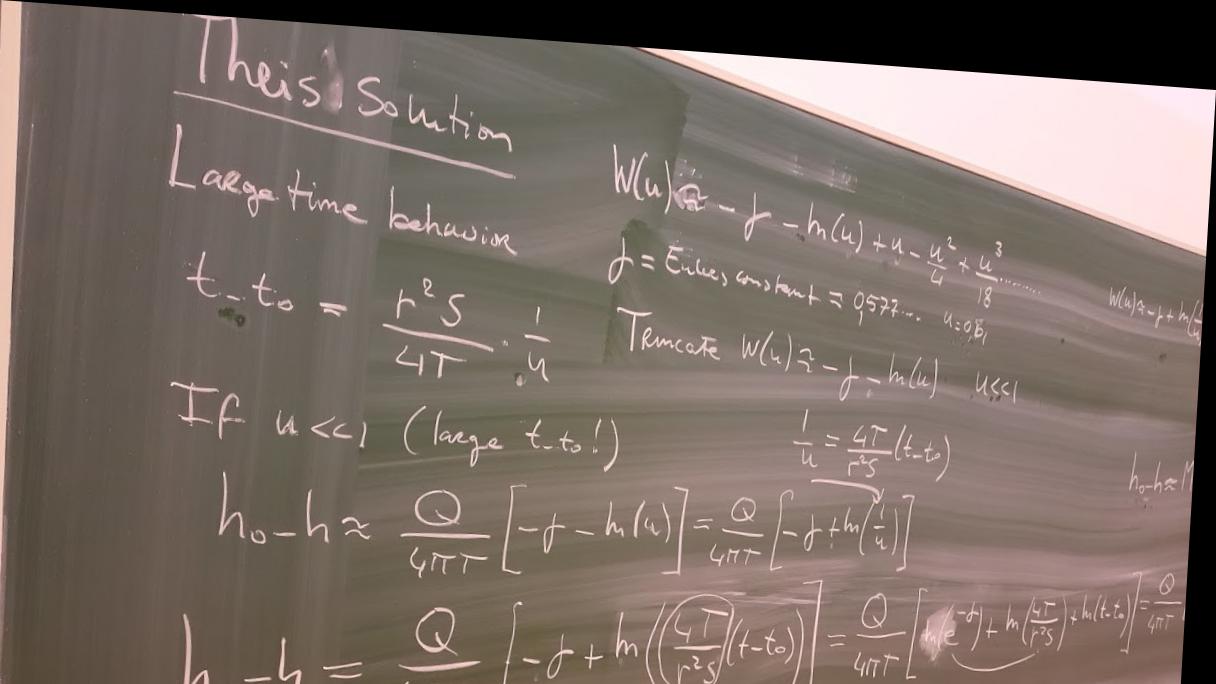 Theis Solution
Large time behavior
t-t₀ = r²S/4T · 1/u
If u <<1 (large t-t₀!)
h₀-h ≈ Q/4πT [-γ - ln(u)] = Q/4πT [-γ + ln(1/u)]
h₀-h = Q/ [-γ + ln((4T/r²S)(t-t₀))] = Q/4πT [ln(e^-γ) + ln(4T/r²S) + ln(t-t₀)] = Q/4πT
W(u) ≈ -γ - ln(u) + u - u²/4 + u³/18 ........
γ = Euler constant = 0,577...
Truncate W(u) ≈ -γ - ln(u) u<<1
1/u = 4T/r²S (t-t₀)
W(u) ≈ -γ + ln(
h₀-h ≈